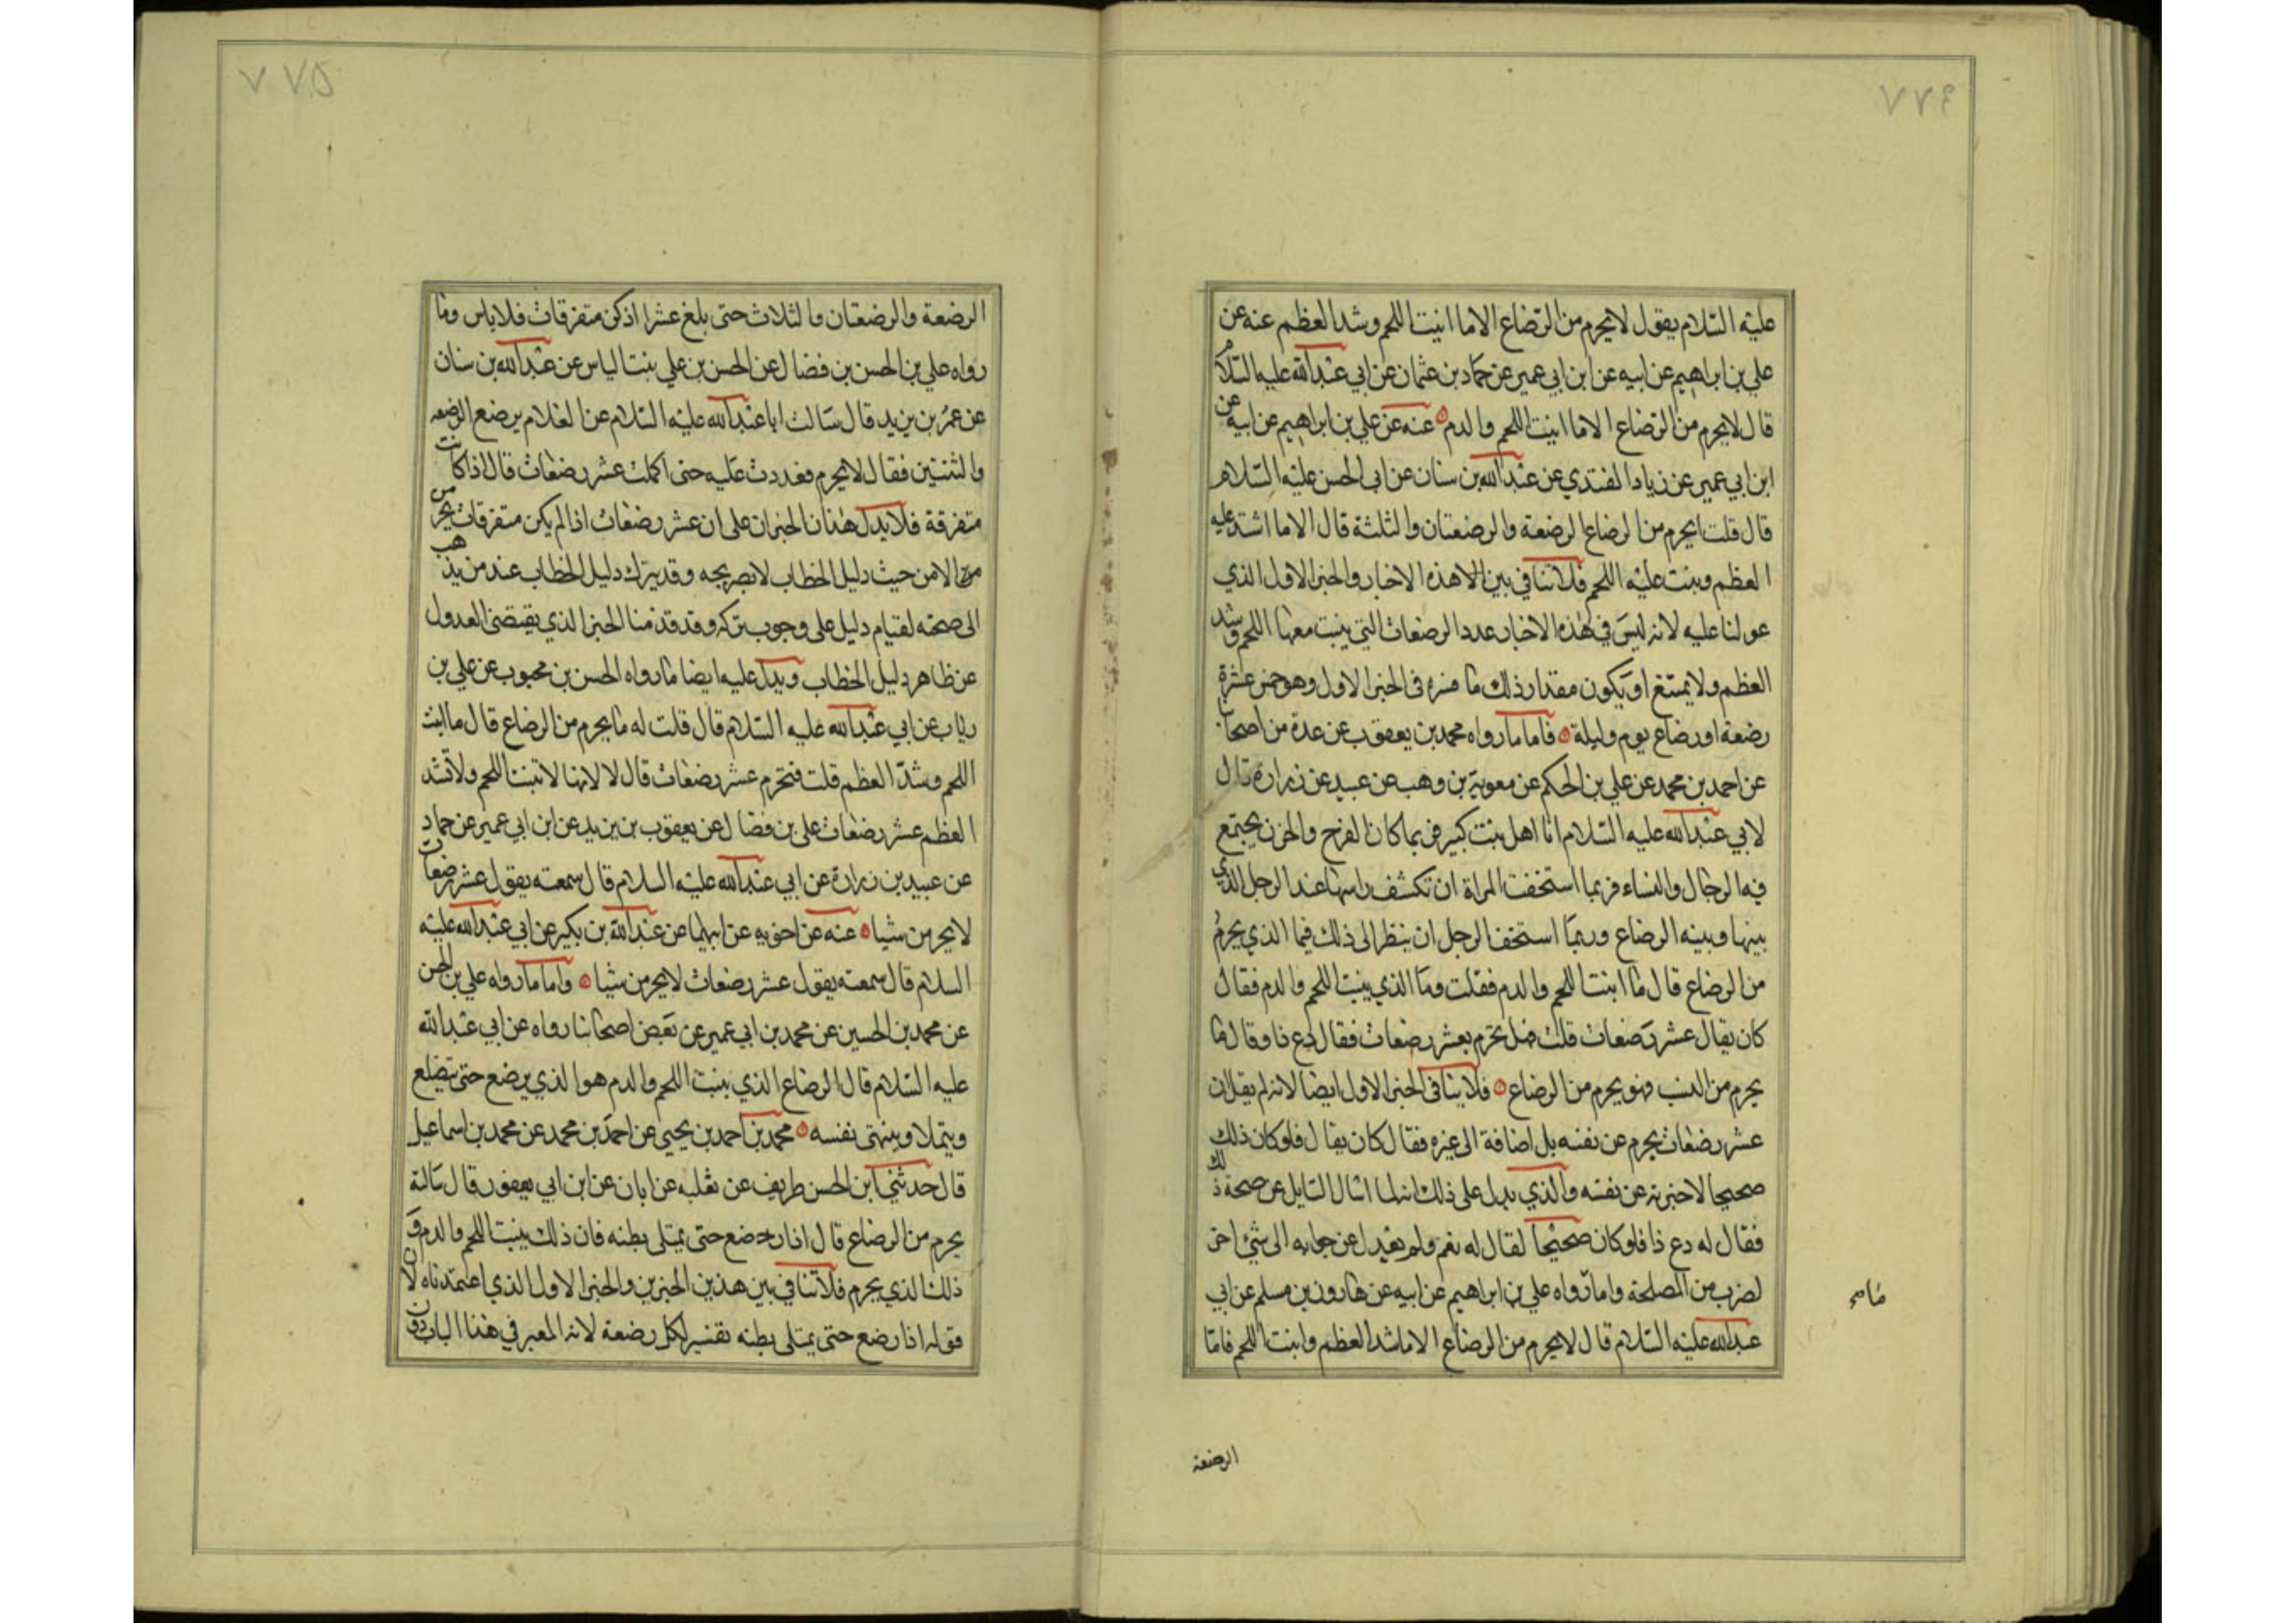 ٧٧٤
عليه السلام يقول لا يحرم من الرضاع الا ما انبت اللحم وشد العظم عنه عن
علي بن ابراهيم عن ابيه عن ابن ابي عمير عن حماد بن عثمان عن ابي عبدالله عليه السلام
قال لا يحرم من الرضاع الا ما انبت اللحم والدم عنه عن علي بن ابراهيم عن ابيه عن
ابن ابي عمير عن زياد القندي عن عبدالله بن سنان عن ابي الحسن عليه السلام
قال قلت يحرم من الرضاع الرضعة والرضعتان والثلثة قال الا ما اشتد عليه
العظم وينبت عليه اللحم فلا تنافي بين هذه الاخبار والخبر الاول الذي
عولنا عليه لانه ليس في هذه الاخبار عدد الرضعات التي ينبت معها اللحم وشد
العظم ولا يمتنع ان يكون مقدار ذلك ما فسره في الخبر الاول وهو خمس عشرة
رضعة او رضاع يوم وليلة فاما ما رواه محمد بن يعقوب عن عدة من اصحابنا
عن احمد بن محمد عن علي بن الحكم عن معوية بن وهب عن عبيد عن زرارة قال
لابي عبدالله عليه السلام انا اهل بيت كبير فربما كان الفرح والحزن يجتمع
فيه الرجال والنساء فربما استخفت المراة ان تكشف راسها عند الرجل الذي
بينها وبينه الرضاع وربما استخف الرجل ان ينظر الى ذلك فما الذي يحرم
من الرضاع قال ما انبت اللحم والدم فقلت وما الذي ينبت اللحم والدم فقال
كان يقال عشر رضعات قلت فهل تحرم بعشر رضعات فقال دع ذا وقال ما
يحرم من النسب فهو يحرم من الرضاع فلا ينافي الخبر الاول ايضا لانه لم يقل ان
عشر رضعات يحرم عن نفسه بل اضافة الى غيره فقال كان يقال فلو كان ذلك
صحيحا لاخبر به عن نفسه والذي يدل على ذلك انه لما سال السايل عن صحة ذلك
فقال له دع ذا فلو كان صحيحا لقال له نعم ولم يعدل عن جوابه الى شئ اخر
لضرب من المصلحة واما رواه علي بن ابراهيم عن ابيه عن هارون بن مسلم عن ابي
عبدالله عليه السلام قال لا يحرم من الرضاع الا ما شد العظم وانبت اللحم فاما
الرضعة
٧٧٥
الرضعة والرضعتان والثلاث حتى بلغ عشرا اذ كن متفرقات فلا باس وما
رواه علي بن الحسن بن فضال عن الحسن بن علي بنت الياس عن عبدالله بن سنان
عن عمر بن يزيد قال سالت ابا عبدالله عليه السلام عن الغلام يرضع الرضعه
والثنتين فقال لا يحرم فعددت عليه حتى اكملت عشر رضعات قال اذا كانت
متفرقة فلا يدل هذان الخبران على ان عشر رضعات اذا لم يكن متفرقات يحرمن
الا من حيث دليل الخطاب لا بصريحه وقد يترك دليل الخطاب عند من يذهب
الى صحته لقيام دليل على وجوب تركه وقد قدمنا الخبر الذي يقتضى العدول
عن ظاهر دليل الخطاب ويدل عليه ايضا ما رواه الحسن بن محبوب عن علي بن
رئاب عن ابي عبدالله عليه السلام قال قلت له ما يحرم من الرضاع قال ما انبت
اللحم وشد العظم قلت فتحرم عشر رضعات قال لا لانها لا تنبت اللحم ولا تشد
العظم عشر رضعات علي بن فضال عن يعقوب بن يزيد عن ابن ابي عمير عن حماد
عن عبيد بن زرارة عن ابي عبدالله عليه السلام قال سمعته يقول عشر رضعات
لا يحرمن شيا عنه عن اخويه عن ابيهما عن عبدالله بن بكير عن ابي عبدالله عليه
السلام قال سمعته يقول عشر رضعات لا يحرمن شيا واما ما رواه علي بن الحسن
عن محمد بن الحسين عن محمد بن ابي عمير عن بعض اصحابنا رواه عن ابي عبدالله
عليه السلام قال الرضاع الذي ينبت اللحم والدم هو الذي يرضع حتى يتضلع
ويتملا وينتهى نفسه محمد بن احمد بن يحيى عن احمد بن محمد عن محمد بن اسماعيل
قال حدثني ابن الحسن ظريف عن ثعلبه عن ابان عن ابن ابي يعفور قال سالته
يحرم من الرضاع قال اذا رضع حتى يمتلى بطنه فان ذلك ينبت اللحم والدم و
ذلك الذي يحرم فلا تنافي بين هذين الخبرين والخبر الاول الذي اعتمدناه لان
قوله اذا رضع حتى يمتلى بطنه تفسير لكل رضعة لانه المعبر في هذا الباب دون